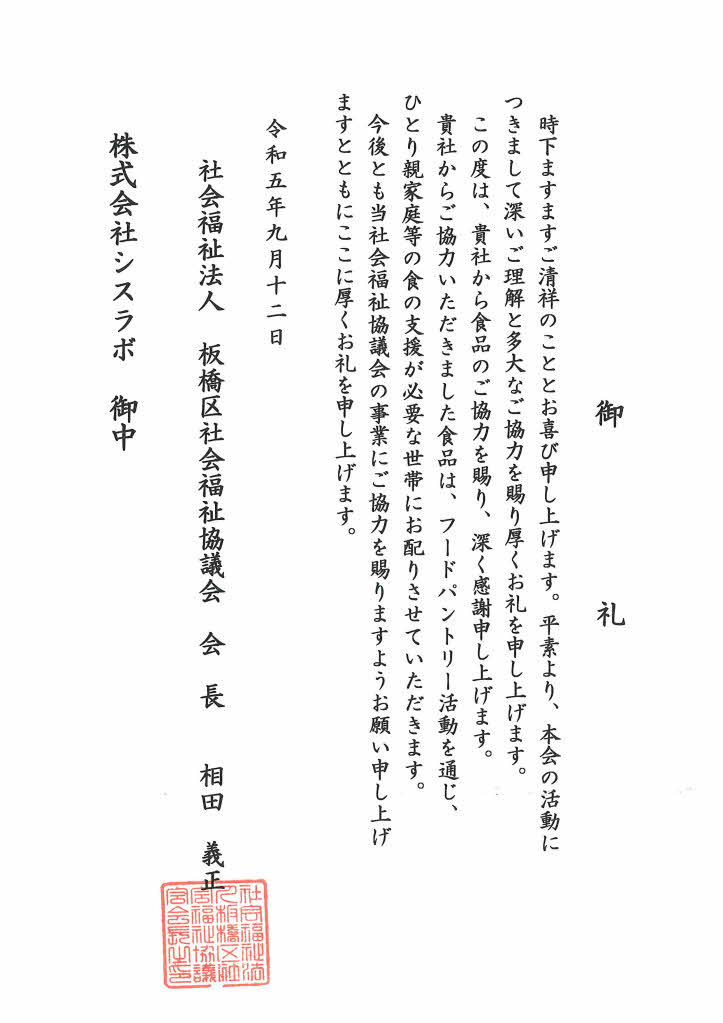 御　礼
時下ますますご清祥のこととお喜び申し上げます。平素より、本会の活動に
つきまして深いご理解と多大なご協力を賜り厚くお礼を申し上げます。
この度は、貴社から食品のご協力を賜り、深く感謝申し上げます。
貴社からご協力いただきました食品は、フードパントリー活動を通じ、
ひとり親家庭等の食の支援が必要な世帯にお配りさせていただきます。
今後とも当社会福祉協議会の事業にご協力を賜りますようお願い申し上げ
ますとともにここに厚くお礼を申し上げます。
令和五年九月十二日
社会福祉法人　板橋区社会福祉協議会　会　長　相田　義正
社会福祉法
人板橋区社
会福祉協議
会会長之印
株式会社シスラボ　御中